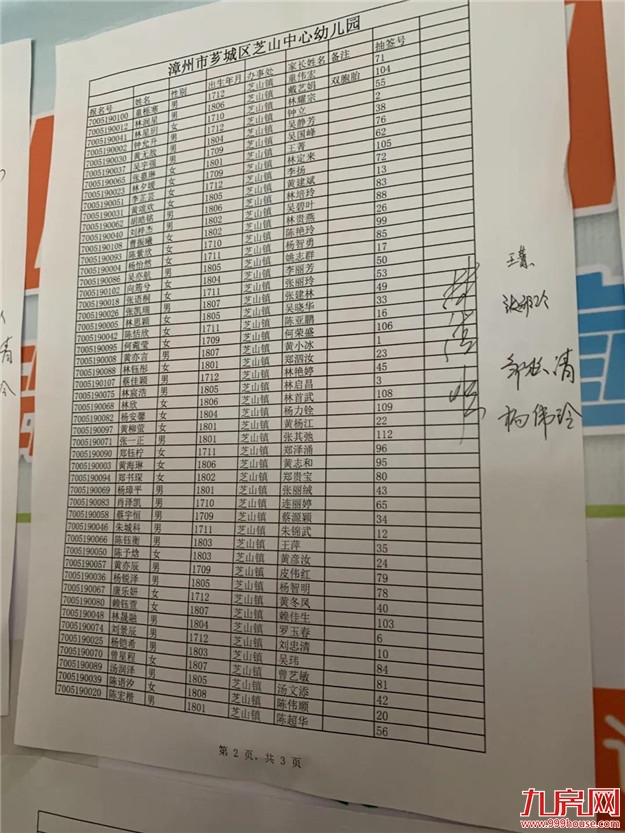 漳州市芗城区芝山中心幼儿园
报名号 姓名 性别 出生年月 办事处 家长姓名 备注 抽签号
7005190100 童栎骞 男 1712 芝山镇 童伟宏 71
7005190012 林润星 男 1806 芝山镇 戴艺娟 双胞胎 104
7005190041 林星玥 女 1710 芝山镇 林耀宗 55
7005190002 钟允升 男 1712 芝山镇 钟立 2
7005190030 黄无敌 男 1804 芝山镇 吴静芳 38
7005190037 吴宇强 男 1709 芝山镇 吴国峰 76
7005190065 张慕琳 女 1801 芝山镇 王菁 62
7005190023 林夕媛 女 1804 芝山镇 林定来 105
7005190051 李芷芸 女 1712 芝山镇 李扬 72
7005190031 黄煊欢 女 1805 芝山镇 黄建斌 13
7005190062 胡皓铭 男 1806 芝山镇 林培玲 83
7005190040 刘梓杰 男 1802 芝山镇 吴碧叶 88
7005190108 曹振曦 男 1805 芝山镇 林贵燕 26
7005190093 陈紫欣 女 1710 芝山镇 陈艳玲 99
7005190004 杨怡然 女 1710 芝山镇 杨智勇 85
7005190086 吴亦航 男 1801 芝山镇 姚志群 17
7005190102 向筠兮 女 1711 芝山镇 李丽芳 50
7005190018 张语桐 女 1710 芝山镇 张丽玲 53
7005190026 张凯瑞 男 1805 芝山镇 张建林 49
7005190005 林恩颖 女 1711 芝山镇 吴晓华 33
7005190042 陈恬欣 女 1805 芝山镇 陈亚鹏 16
7005190095 何苑莹 女 1711 芝山镇 何荣盛 106
7005190008 黄亦言 男 1709 芝山镇 黄小冰 1
7005190088 林钰彤 女 1807 芝山镇 郑泗汝 23
7005190107 蔡佳颖 女 1801 芝山镇 林艳婷 45
7005190075 林宸浩 男 1712 芝山镇 林启昌 3
7005190068 林欣 女 1805 芝山镇 林首武 108
7005190082 杨安馨 女 1710 芝山镇 杨力铨 109
7005190097 黄柳萱 女 1804 芝山镇 黄杨江 22
7005190071 张一正 男 1801 芝山镇 张其弛 112
7005190090 郑钰柠 女 1711 芝山镇 郑泽涌 96
7005190003 黄海琳 女 1806 芝山镇 黄志和 95
7005190094 郑书琛 女 1802 芝山镇 郑贵宝 80
7005190069 杨璋平 男 1801 芝山镇 张丽绒 43
7005190083 肖泽凯 男 1710 芝山镇 连丽婷 65
7005190058 蔡宇恒 男 1709 芝山镇 蔡源颖 34
7005190046 朱城科 男 1711 芝山镇 朱锦武 12
7005190066 陈钰衡 男 1803 芝山镇 王萍 35
7005190050 陈予焓 女 1803 芝山镇 黄彦汝 24
7005190057 黄亦辰 男 1710 芝山镇 皮伟红 79
7005190036 杨锐泽 男 1805 芝山镇 杨智明 78
7005190067 康乐妍 女 1712 芝山镇 黄冬凤 40
7005190080 赖钰萱 女 1807 芝山镇 赖佳生 103
7005190048 林晟融 男 1804 芝山镇 罗玉春 6
7005190074 刘景辰 男 1712 芝山镇 刘忠清 10
7005190025 杨铠希 男 1803 芝山镇 吴玮 84
7005190070 曾星程 女 1712 芝山镇 曾艺敏 81
7005190089 汤润泽 男 1805 芝山镇 汤文添 42
7005190039 陈语汐 女 1808 芝山镇 陈伟顺 20
7005190020 陈宏楷 男 1801 芝山镇 陈超华 56
第 2 页，共 3 页
杨伟玲
九房网
www.999house.com